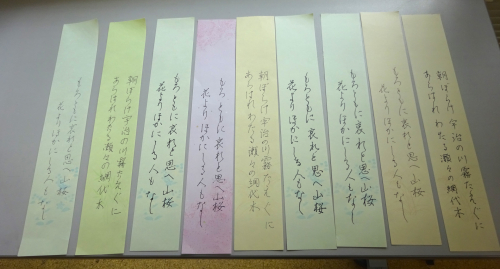 朝ぼらけ宇治の川霧たえ〲に
あらはれわたる瀬々の網代木
もろともに哀れと思へ山桜
花よりほかにしる人もなし
もろともに哀れと思へ山桜
花よりほかにしる人もなし
もろともに哀れと思へ山桜
花よりほかにしる人もなし
朝ぼらけ宇治の川霧たえ〲に
あらはれわたる瀬々の網代木
もろともに哀れと思へ山桜
花よりほかにしる人もなし
もろともに哀れと思へ山桜
花よりほかにしる人もなし
朝ぼらけ宇治の川霧たえ〲に
あらはれわたる瀬々の網代木
もろともに哀れと思へ山桜
花よりほかにしる人もなし